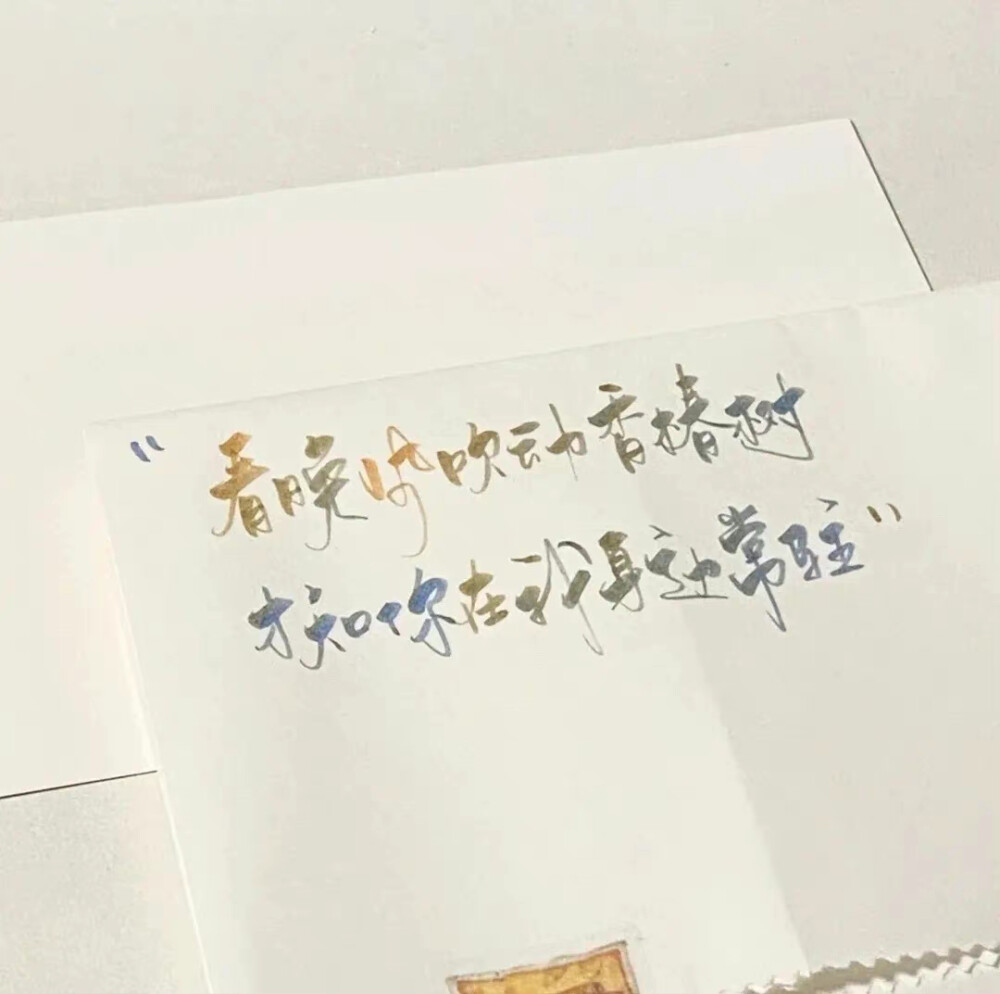 "看晚时吹动香椿树
才知你在我身边常驻"